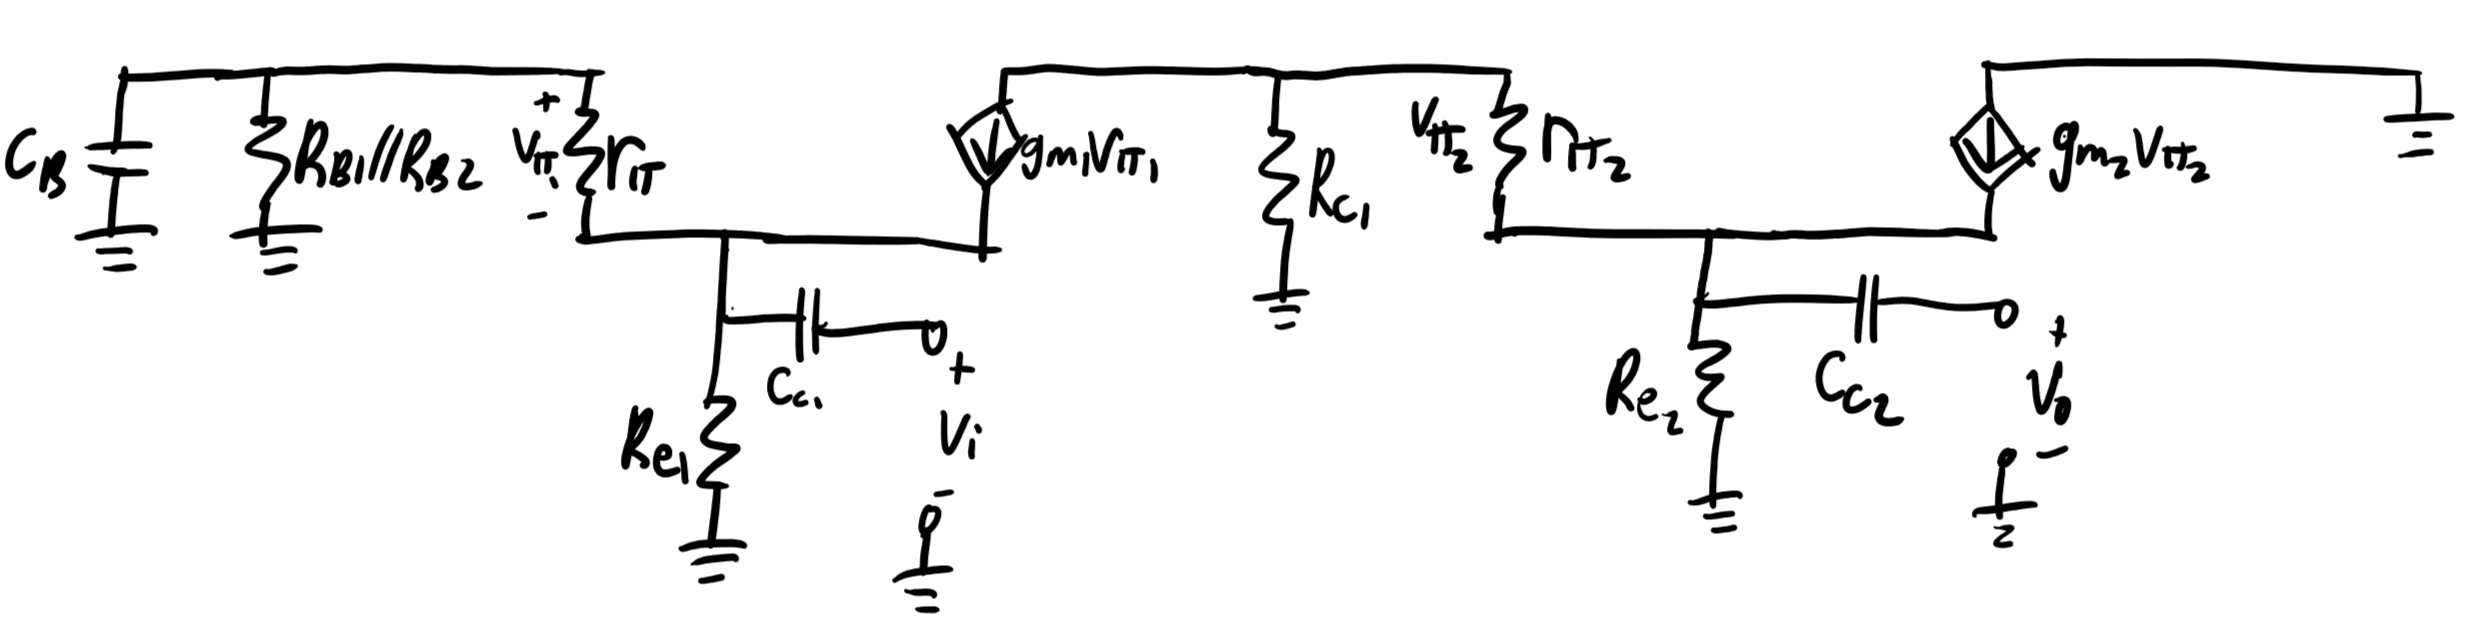 C_B
R_B1//R_B2
+
V_π1
-
r_π
g_m1V_π1
R_C1
V_π2
r_π2
g_m2V_π2
C_C1
R_e1
+
V_i
-
R_e2
C_C2
+
V_o
-